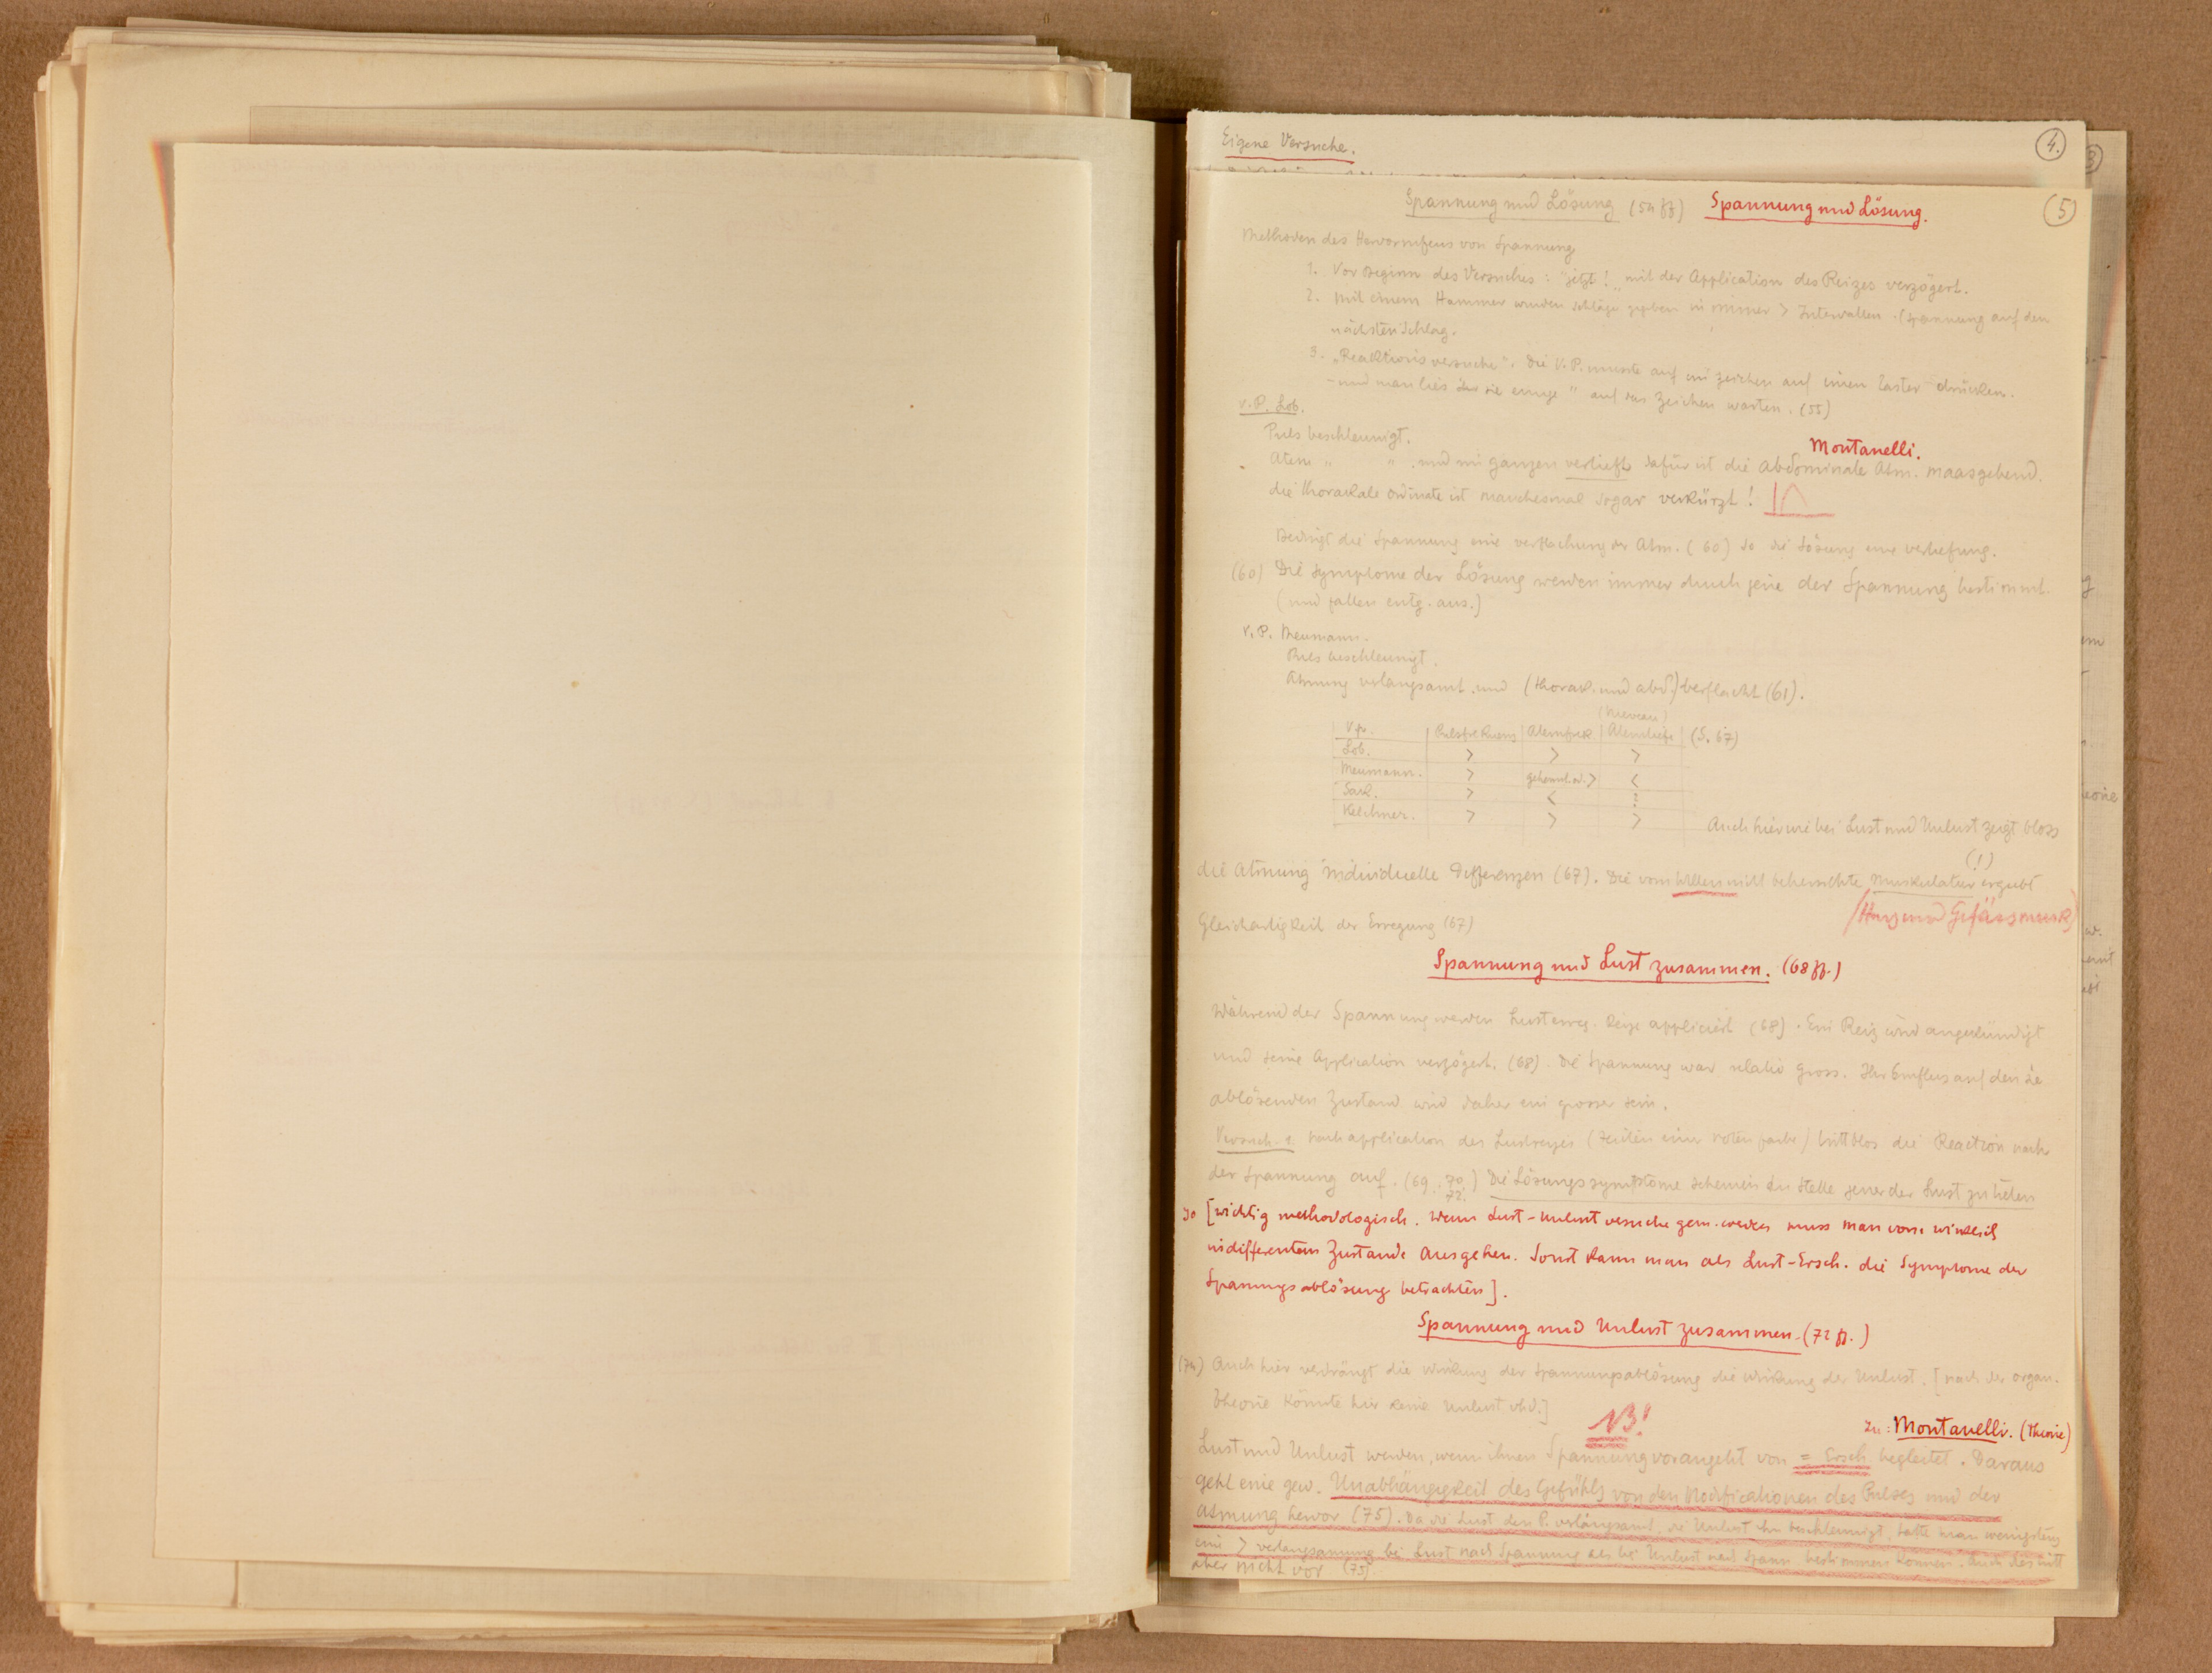 Eigene Versuche.
4.
3
Spannung und Lösung (54 ff) Spannung und Lösung.
5
Methoden des Hervorrufens von Spannung
1. Vor Beginn des Versuches: "jetzt!" mit der Application des Reizes verzögert.
2. Mit einem Hammer wurden Schläge gegeben in immer > Intervallen. (Spannung auf den
nächsten Schlag.
3. „Reaktionsversuche". Die V.P. musste auf ein Zeichen auf einen Taster drücken.
- und man lies sie einige " auf das Zeichen warten. (55)
V.P. Lob.
Puls beschleunigt.
Montanelli.
Atem " " , und im ganzen vertieft dafür ist die abdominale Atm. maasgebend.
die thorakale Ordinate ist manchesmal sogar verkürzt!
Bedingt die Spannung eine Verflachung der Atm. (60) so die Lösung eine Vertiefung.
(60) Die Symptome der Lösung werden immer durch jene der Spannung bestimmt.
(und fallen entg. aus.)
V.P. Meumann.
Puls beschleunigt.
Atmung verlangsamt und (thorak. und abd.) verflacht (61).
(Niveau)
Vp. Pulsfrequenz Atemfreq Atemtiefe (S. 67)
Lob. > > >
Meumann. > gehemmt od. > <
Sack. > <
Kelchner. > > >
Auch hier wie bei Lust und Unlust zeigt bloss
(!)
die Atmung individuelle Differenzen (67). Die vom Willen nicht beherrschte Muskulatur ergibt
(Herz und Gefässmusk)
Gleichartigkeit der Erregung (67)
Spannung und Lust zusammen. (68 ff.)
Während der Spannung werden Lusterreg. Reize appliciert (68). Ein Reiz wird angekündigt
und seine Application verzögert. (68). Die Spannung war relativ gross. Ihr Einfluss auf den sie
ablösenden Zustand wird daher ein grosser sein.
Versuch. 1. Nach Application des Lustreizes (zeitlen einer roten Farbe) tritt blos die Reaction nach
der Spannung auf. (69, 70, 72.) Die Lösungssymptome scheinen an Stelle jener der Lust zu treten
70 [wichtig methodologisch. Wenn Lust-Unlust versuche gem. werden muss man vom wirklich
indifferenten Zustande ausgehen. Sonst kann man als Lust-Ersch. die Symptome der
Spannungsablösung betrachten].
Spannung und Unlust zusammen. (72 ff.)
(74) Auch hier verdrängt die Wirkung der Spannungsablösung die Wirkung der Unlust. [nach der organ.
Theorie könnte hier keine Unlust vhd.]
NB!
zu: Montanelli. (Theorie)
Lust und Unlust werden, wenn ihnen Spannung vorangeht von = Ersch begleitet. Daraus
geht eine gew. Unabhängigkeit des Gefühls von den Modificationen des Pulses und der
Atmung hervor (75). Da die Lust den P. verlangsamt, die Unlust ihn beschleunigt, hätte man wenigstens
eine > Verlangsamung bei Lust nach Spannung als bei Unlust nach Spann. bestimmen können. Auch das tritt
aber nicht vor (75).